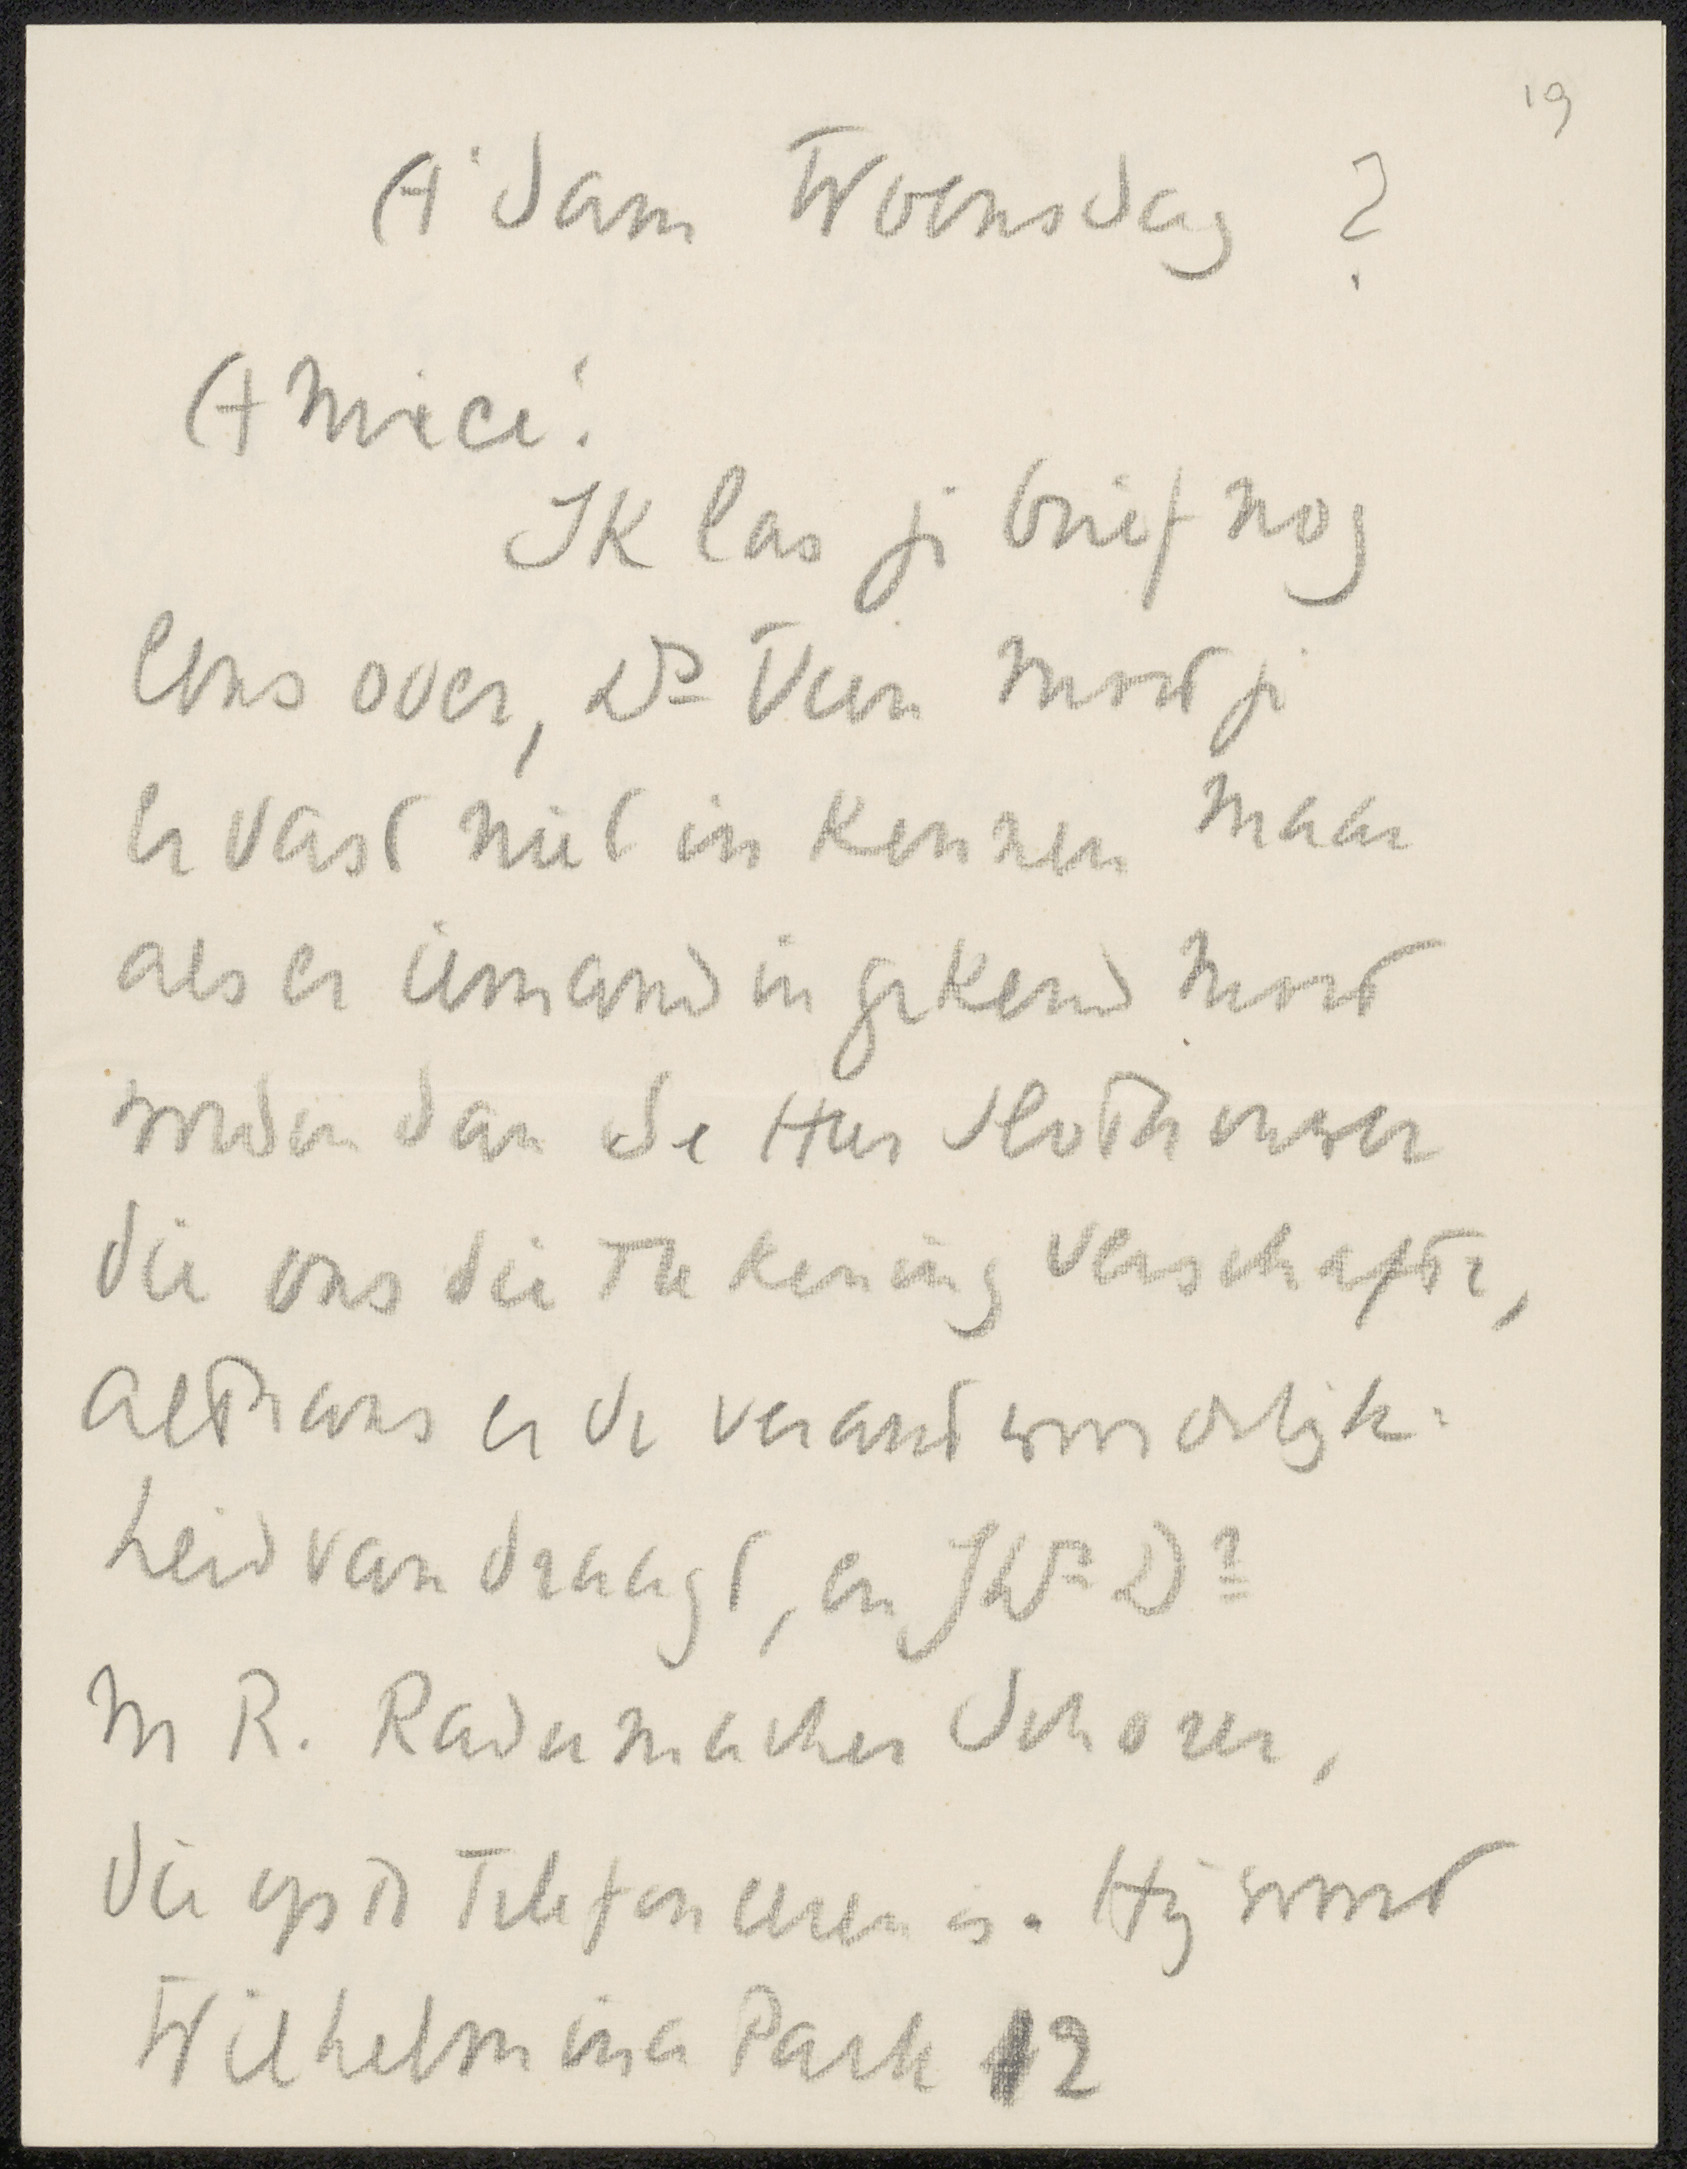 19
A'dam Woensdag ?
Amice!
Ik las je brief nog
eens over, Dr Veen moet je
er vast niet in kennen maar
als er iemand in gekend moet
worden dan de Heer Slothouwer
die ons die teekening verschafte,
althans er de verantwoordelijk-
heid van draagt, en JWr Dr
M R. Radermacher Schorer,
die op te telefoneeren is. Hij woont
Wilhelmina Park 12